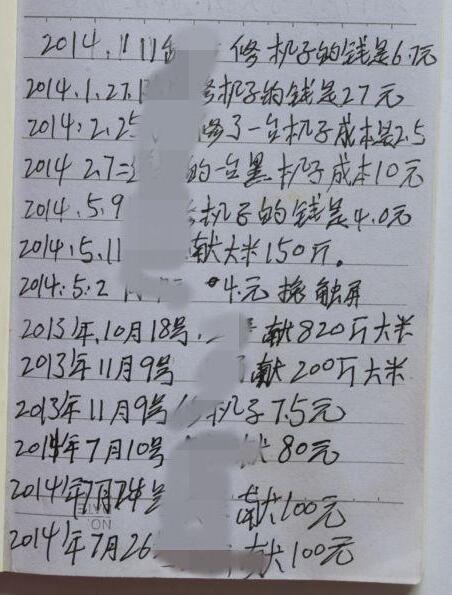 2014.1.11 修机子的钱是6.7元
2014.1.27. 机子的钱是27元
2014.2.25 修了一台机子成本是2.5
2014 2.7= 的一台黑机子成本10元
2014.5.9 机子的钱是4.0元
2014.5.11 献大米150斤。
2014.5.2 4.元 换触屏
2013年.10月18号. 献820斤大米
2013年11月9号 献200斤大米
2013年11月9号 机子7.5元
2014年7月10号 献80元
2014年7月24号 献100元
2014年7月26 献100元